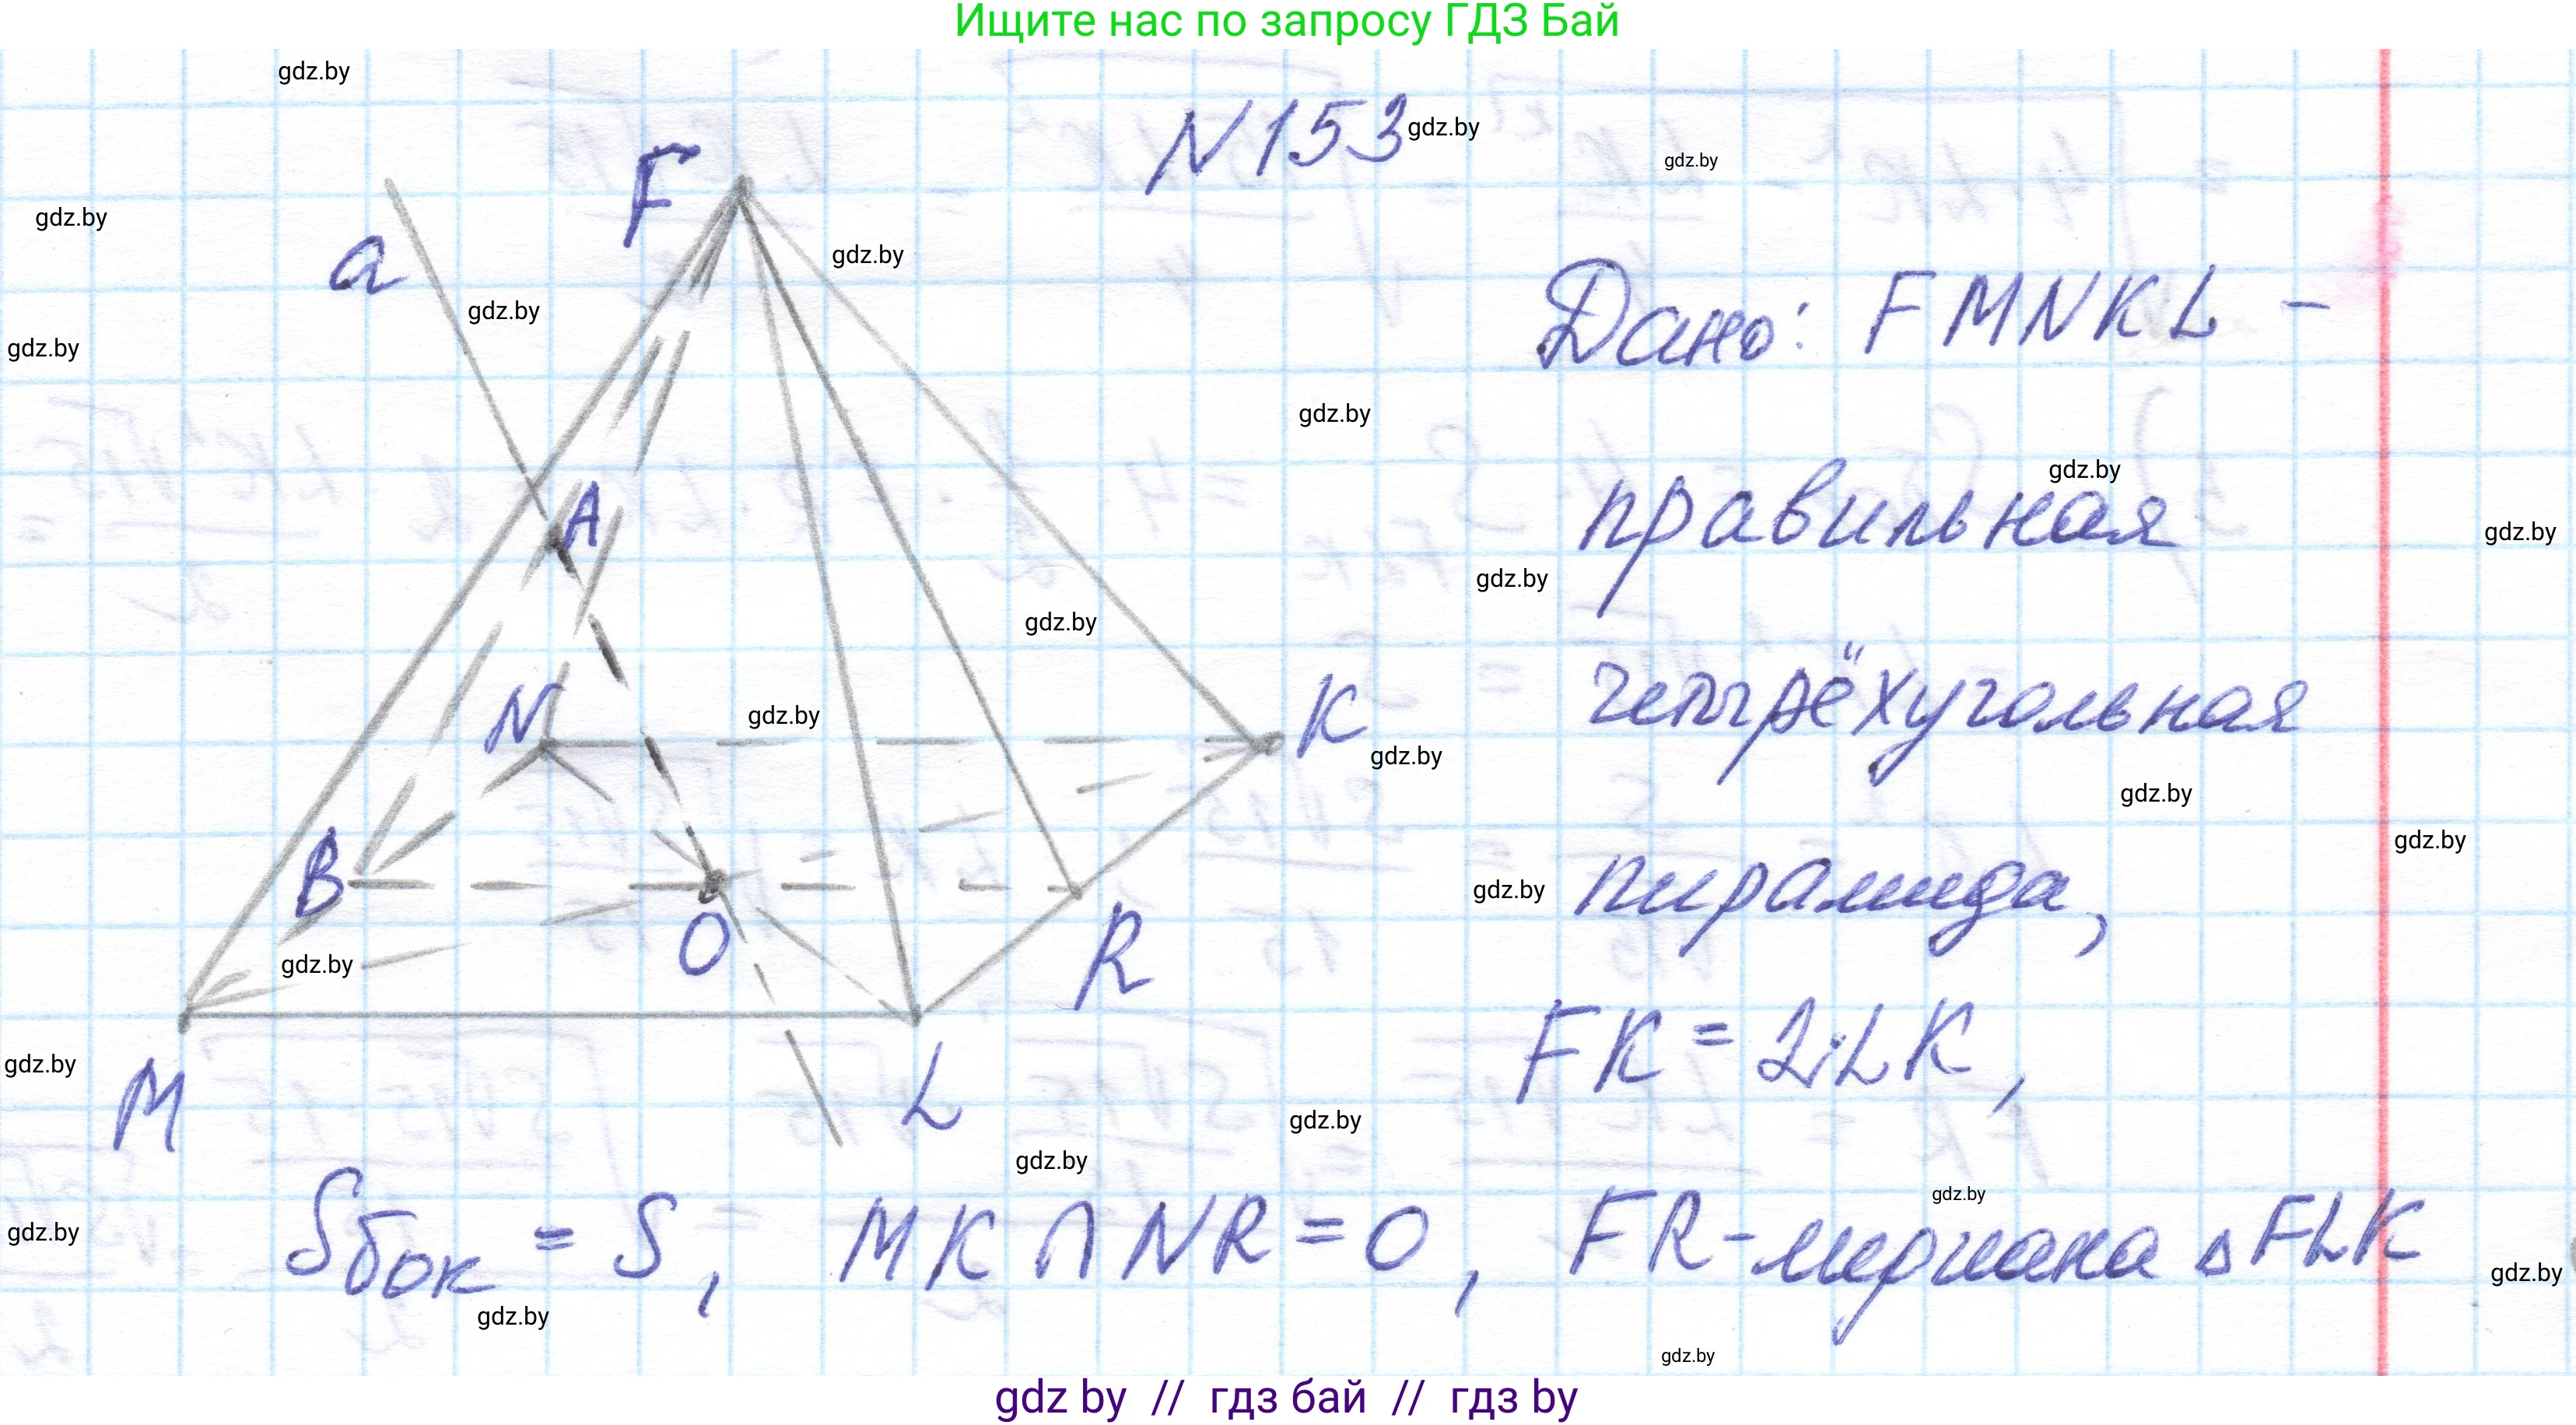 Ищите нас по запросу ГДЗ Бай
gdz.by
N 153
gdz.by
gdz.by
F
gdz.by
a
gdz.by
gdz.by
Дано: FMNKL -
gdz.by
gdz.by
gdz.by
A
правильная
gdz.by
gdz.by
gdz.by
N
gdz.by
K
gdz.by
четырёхугольная
gdz.by
gdz.by
B
gdz.by
пирамида,
O
R
gdz.by
gdz.by
M
L
FK = 2·LK,
gdz.by
gdz.by
gdz.by
Sбок = S, MK ∩ NR = O, FR - медиана △ FLK
gdz.by
gdz.by
gdz.by
gdz.by
gdz by // гдз бай // гдз by